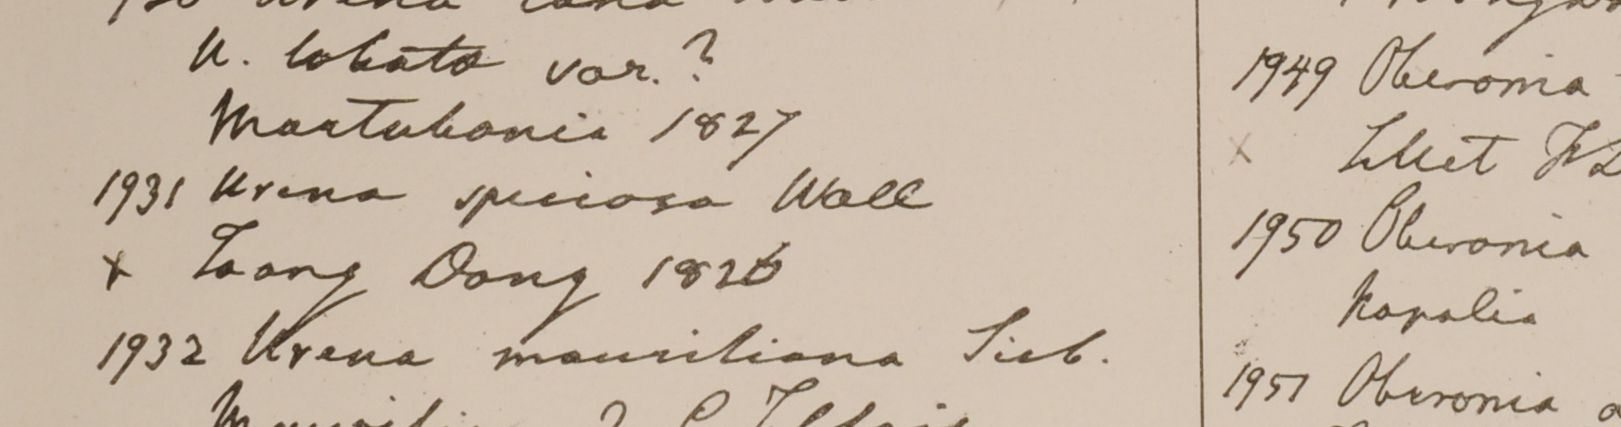 U. lobata var.?
Martubania 1827
1931 Urena speciosa Wall
x Taong Dong 1826
1932 Urena mauritiana Sieb.
1949 Oberonia
x
1950 Oberonia
Napalia
1951 Oberonia